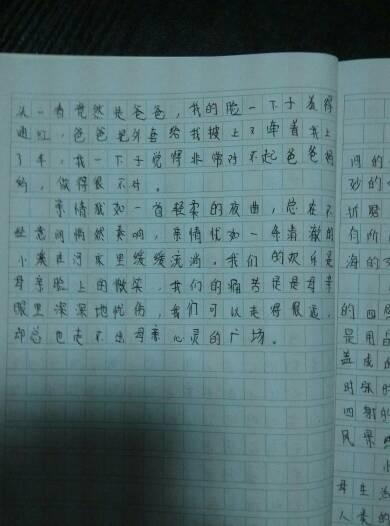 头一看竟然是爸爸，我的脸一下子羞得
通红，爸爸把外套给我披上了牵着我上
了车，我一下子觉得非常对不起爸爸妈
妈，做得很不对。
亲情犹如一首轻柔的夜曲，总在不
经意间悄然奏响，亲情犹如一条清澈的
小溪在河床里缓缓流淌，我们的欢乐是
母亲脸上的微笑，我们的痛苦是母亲
眼里深深地忧伤，我们可以走得很远，
却总也走不出母亲心灵的广场。
间的
妙的
近路
有所
海的
的四
是用
盖成
时保
四射的
风景
母生活
人类的